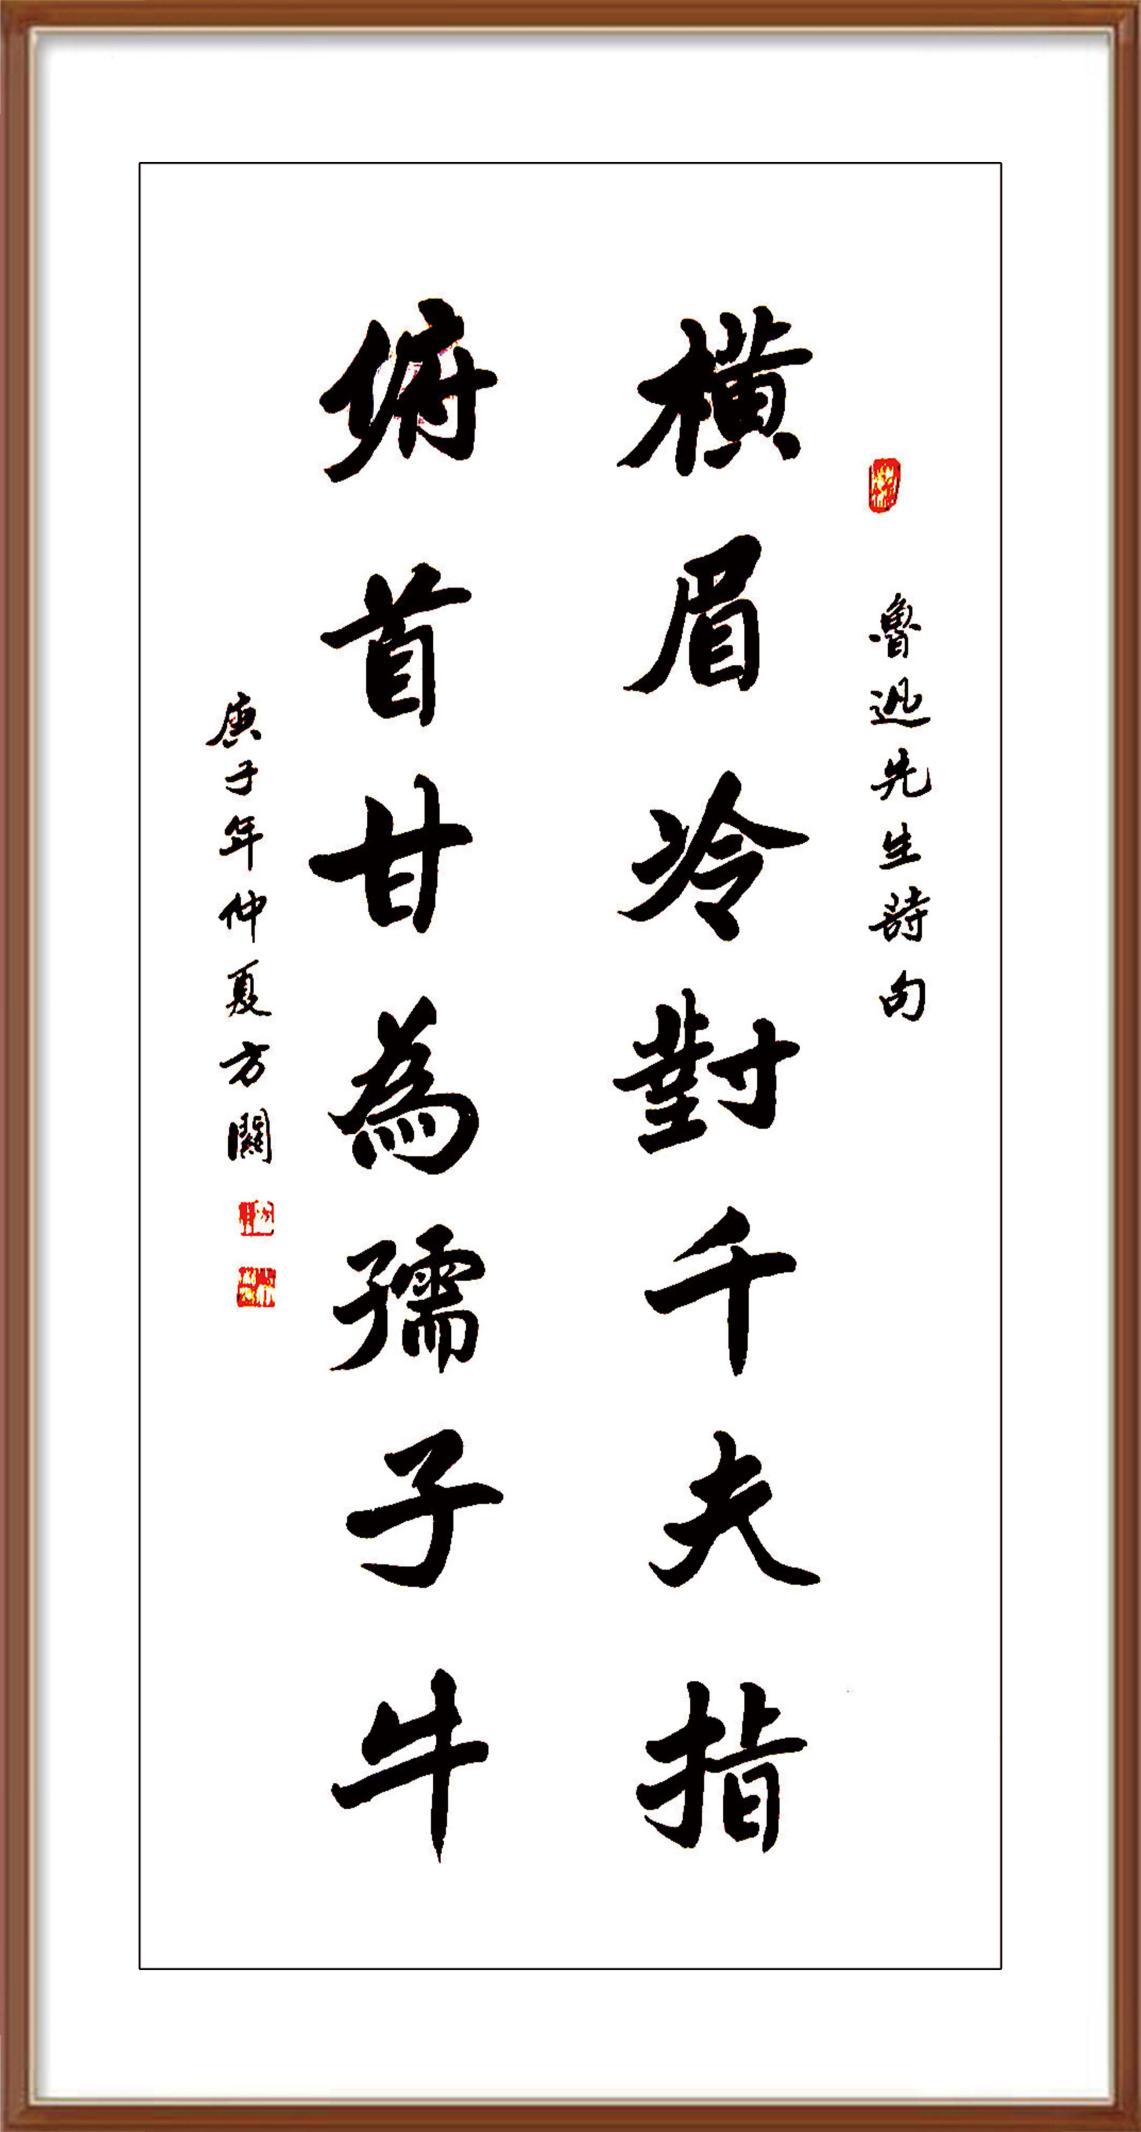 魯迅先生詩句
橫眉冷對千夫指
俯首甘為孺子牛
庚子年仲夏方闢